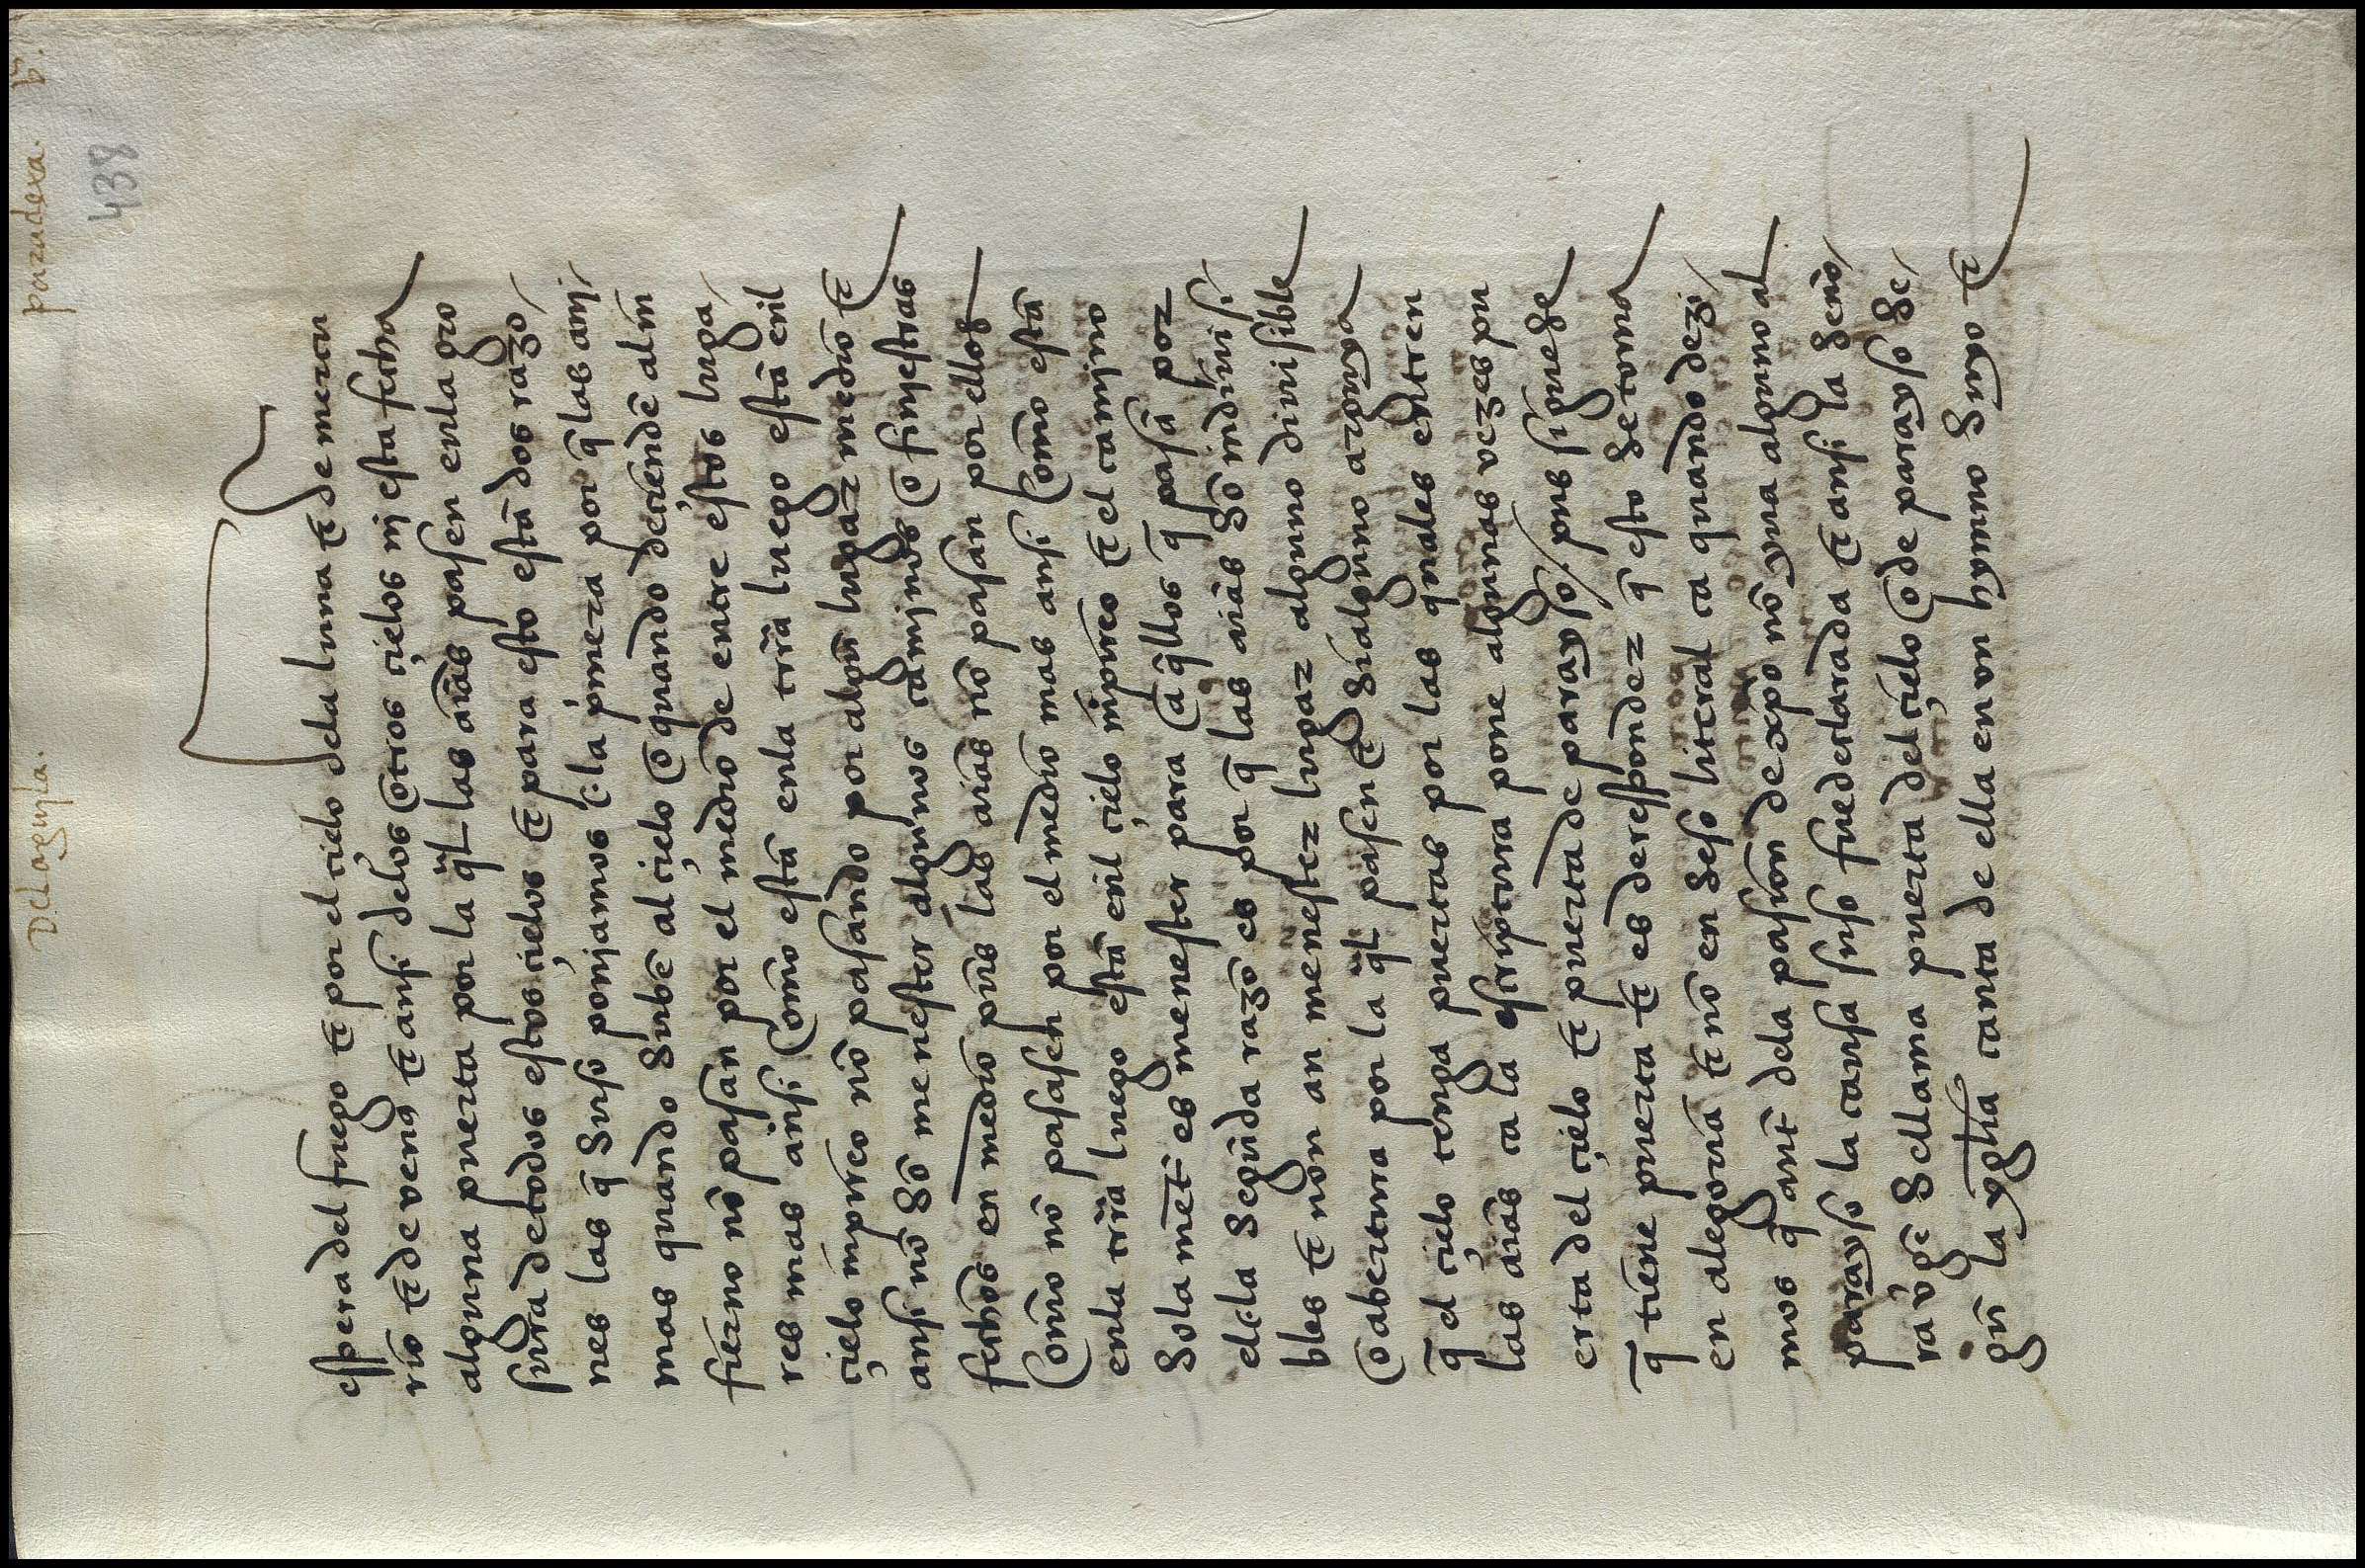 Del agujla. paradoxa. pª.
438
espera del fuego ⁊ por el çielo dela luna ⁊ de mercu
rio ⁊ de venꝰ ⁊ ansi delos otros çielos nj esta fecha
alguna puerta por la ql̃ las aĩas pasen enla gro
sura de todos estos çielos ⁊ para esto estã dos razo/
nes las q̃ suso ponjamos ẽ la pͥmera por q̃ las anj/
mas quando subẽ al çielo o quando deçiendẽ al ĩn
fierno nõ pasan por el medio de entre estos luga/
res mas ansi como estã enla trr̃a luego estã enl
çielo inpireo nõ pasando por algũ lugar medio ⁊
ansi nõ sõ menester algunos camjnos o finjestras
fechos en medio pues las aĩas nõ pasan por ellos
como nõ pasasen por el medio mas ansi como estã
enla trr̃a luego estã enl çielo inpireo ⁊ el camjno
sola mẽt̃ es menester para aq̃llos q̃ pasã por
el ẽ la segũda razõ es por q̃ las aĩas sõ indiuisi/
bles ⁊ non an menester lugar alguno diuisible
o abertura por la ql̃ pasen ⁊ si alguno arguya
q̃ el çielo tenga puertas por las quales entren
las aĩas ca la escriptura pone algunas vezes pu
erta del çielo ⁊ puerta de parayso/ pues siguese
q̃ tiene puerta ⁊ es de responder q̃ esto se toma
en alegoria ⁊ nõ en seso literal ca quando dezi/
mos q̃ ant̃ dela pasion de xp̃o nõ yua alguno al
parayso la causa suso fue declarada ⁊ ansi la seño/
ra vͥgẽ se llama puerta del çielo o de parayso se/
gũ la ygl̃ia canta de ella en vn hymno suyo ⁊